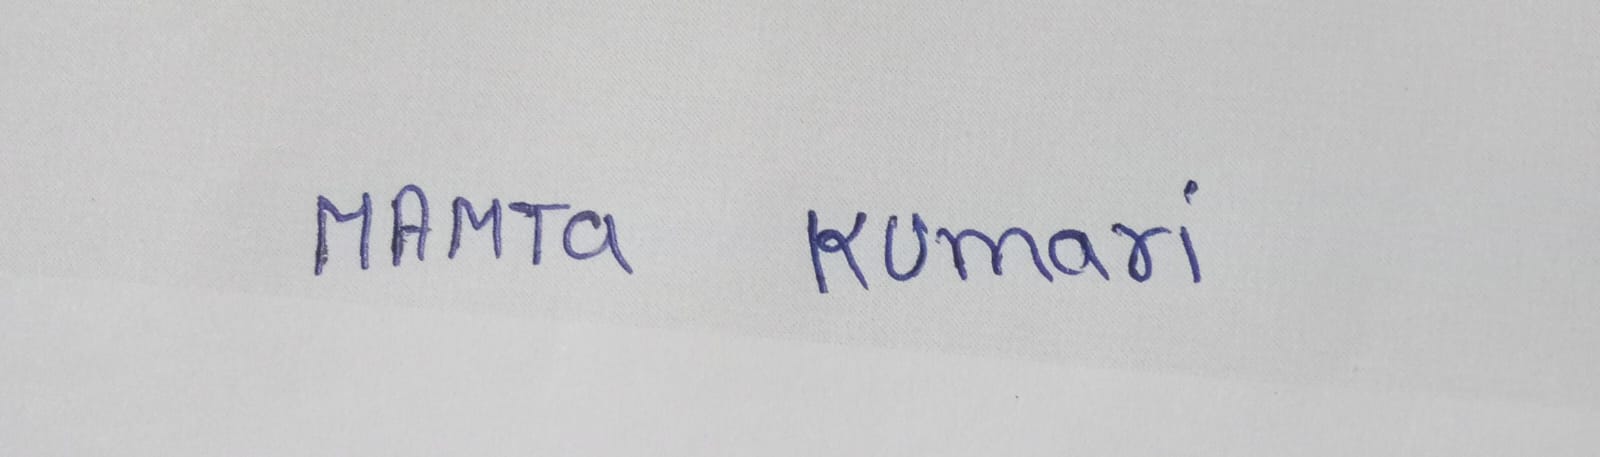 MAMTa Kumari